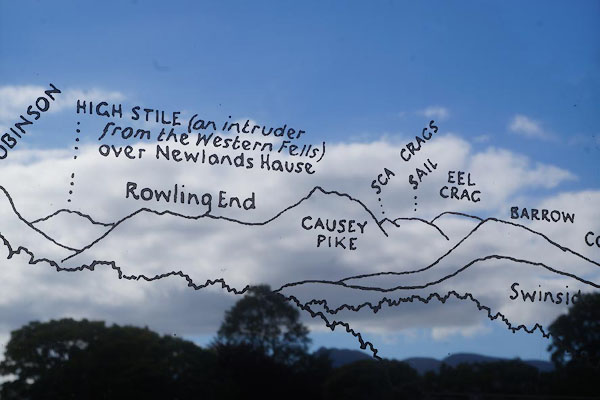 OBINSON
HIGH STILE (an intruder
from the Western Fells)
over Newlands Hause
Rowling End
CAUSEY
PIKE
SCA CRAGS
SAIL
EEL
CRAG
BARROW
CO
Swinsid